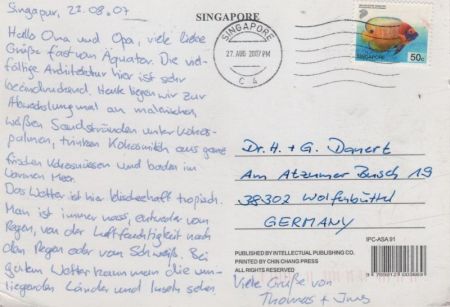 Singapur, 22.08.07
Hallo Oma und Opa, viele liebe
Grüße fast vom Äquator. Die viel-
fältige Architektur hier ist sehr
beeindruckend. Heute liegen wir zur
Abwechslung mal an malerischen,
weißen Sandstränden unter Kokos-
palmen, trinken Kokosmilch aus ganz
frischen Kokosnüssen und baden im
warmen Meer.
Das Wetter ist hier tropisch.
Man ist immer nass, entweder vom
Regen, von der Luftfeuchtigkeit nach
dem Regen oder vom Schweiß. Bei
gutem Wetter kann man die um-
liegenden Länder und Inseln sehen
SINGAPORE
SINGAPORE
27 AUG 2007 PM
C 4
SINGAPORE
50c
Dr. H. + G. Donert
Am Atzumer Busch 19
38302 Wolfenbüttel
GERMANY
IPC-ASA 91
PUBLISHED BY INTELLECTUAL PUBLISHING CO.
PRINTED BY CHIN CHANG PRESS
ALL RIGHTS RESERVED
Viele Grüße von
Thomas + Jens